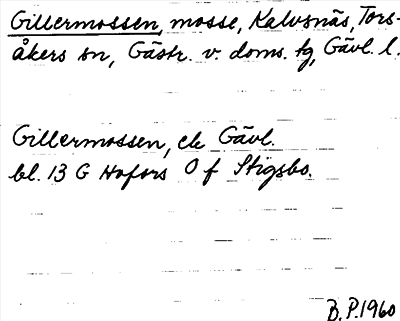 Gillermossen, mosse, Kalvsnäs, Tors-
åkers sn, Gästr. v. doms. tg, Gävl. l.
Gillermossen, ek Gävl.
bl. 13 G Hofors O f Stigsbo.
B.P.1960